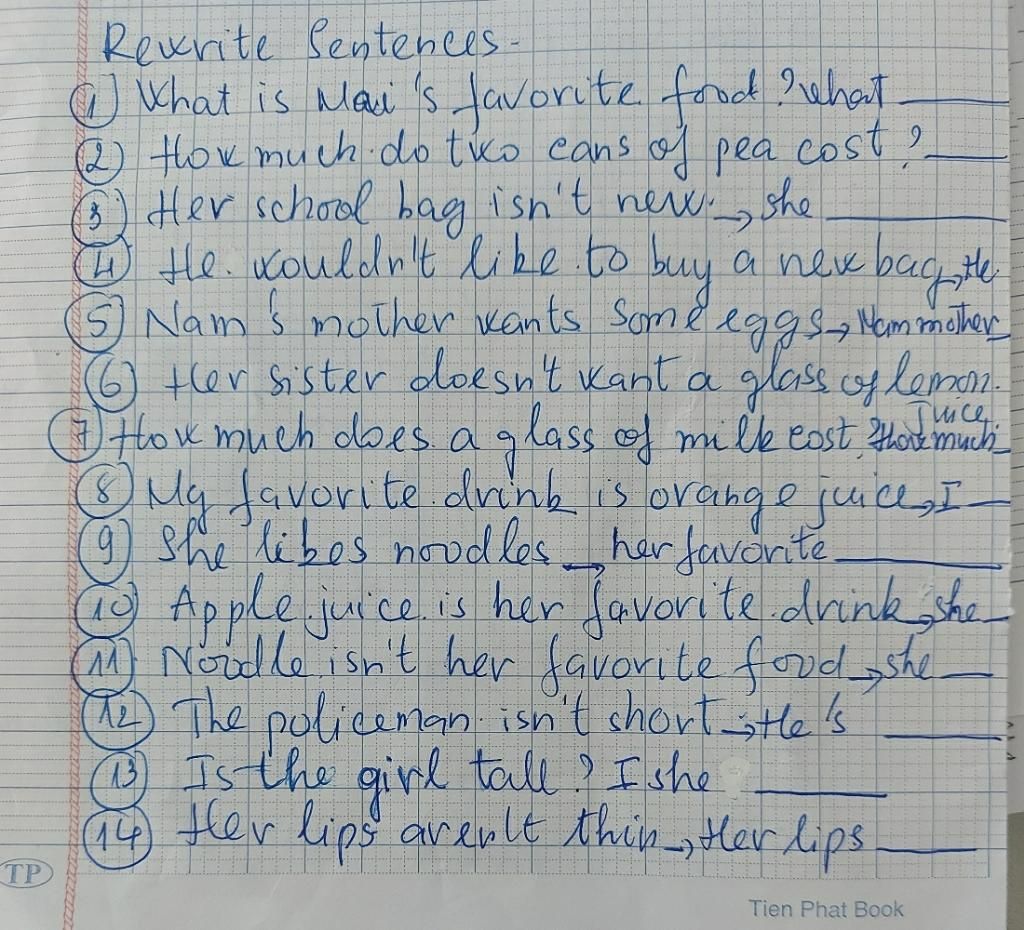 Rewrite Sentences-
1) What is Mai's favorite food? what ____
2) How much do two cans of pea cost? ____
3) Her school bag isn't new. → she ____
4) He wouldn't like to buy a new bag → He
5) Nam's mother wants some eggs → Nam mother
6) Her sister doesn't want a glass of lemon.
Juice
7) How much does a glass of milk cost ? how much
8) My favorite drink is orange juice → I __
9) She likes noodles → her favorite ____
10) Apple juice is her favorite drink → she
11) Noodle isn't her favorite food → she __
12) The policeman isn't short → He's ____
13) Is the girl tall? I she ____
14) Her lips aren't thin → Her lips ____
TP
Tien Phat Book